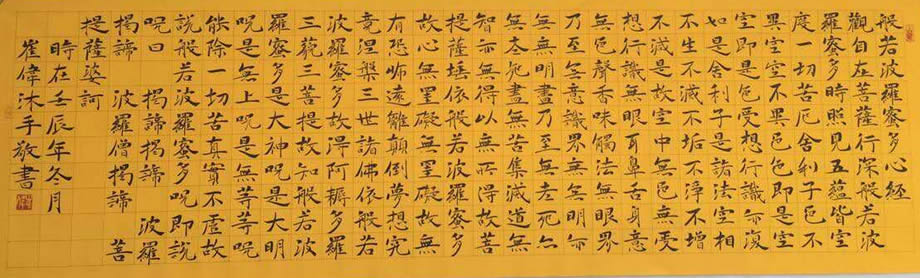 般若波羅蜜多心經
觀自在菩薩行深般若波
羅蜜多時照見五蘊皆空
度一切苦厄舍利子色不
異空空不異色色即是空
空即是色受想行識亦復
如是舍利子是諸法空相
不生不滅不垢不淨不增
不減是故空中無色無受
想行識無眼耳鼻舌身意
無色聲香味觸法無眼界
乃至無意識界無無明亦
無無明盡乃至無老死亦
無老死盡無苦集滅道無
智亦無得以無所得故菩
提薩埵依般若波羅蜜多
故心無罣礙無罣礙故無
有恐怖遠離顛倒夢想究
竟涅槃三世諸佛依般若
波羅蜜多故得阿耨多羅
三藐三菩提故知般若波
羅蜜多是大神呪是大明
呪是無上呪是無等等呪
能除一切苦真實不虛故
說般若波羅蜜多呪即說
呪曰 揭諦 揭諦 波羅
揭諦 波羅僧揭諦 菩
提薩婆訶
時在壬辰年冬月
崔偉沐手敬書